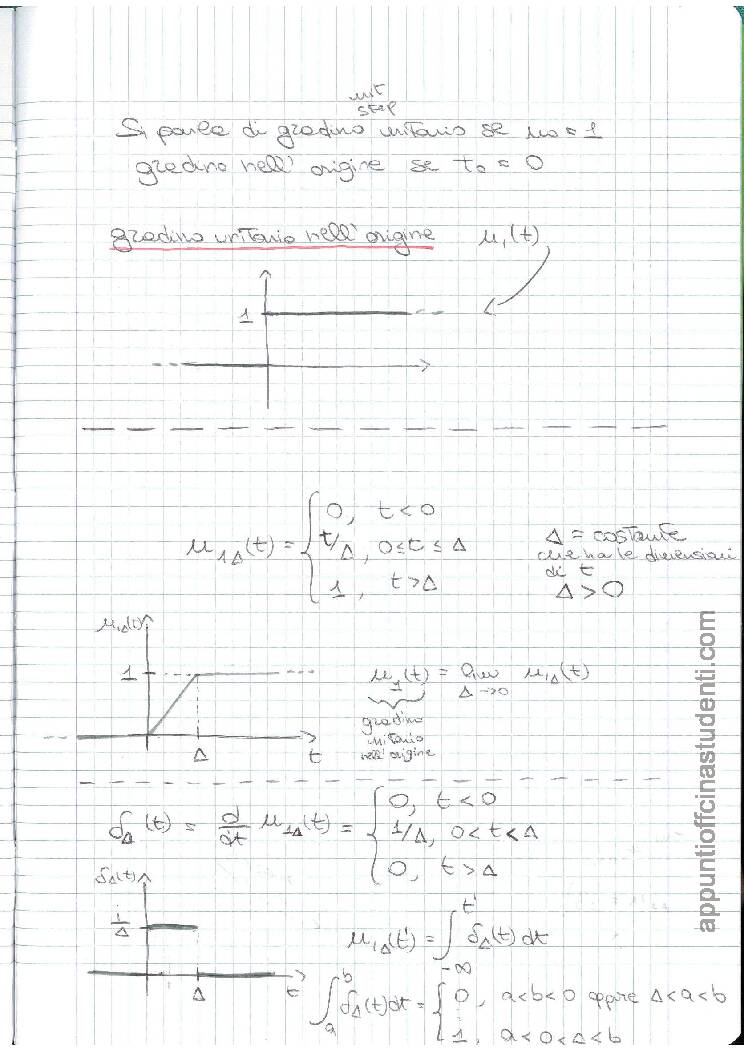 unit
step
Si parla di gradino unitario se u₀ = 1
gradino nell'origine se t₀ = 0
gradino unitario nell'origine u₁(t)
1
u₁Δ(t) = { 0, t < 0
t/Δ, 0 ≤ t ≤ Δ
1, t > Δ
Δ = costante
che ha le dimensioni
di t
Δ > 0
u₁Δ(t)
1
Δ
t
u₁(t) = lim u₁Δ(t)
Δ→0
gradino
unitario
nell'origine
δΔ(t) = d/dt u₁Δ(t) = { 0, t < 0
1/Δ, 0 < t < Δ
0, t > Δ
δΔ(t)
1/Δ
Δ
t
u₁Δ(t') = ∫_{-∞}^{t'} δΔ(t) dt
∫_a^b δΔ(t) dt = { 0, a < b < 0 oppure Δ < a < b
1, a < 0 < Δ < b
appuntioffcinastudenti.com